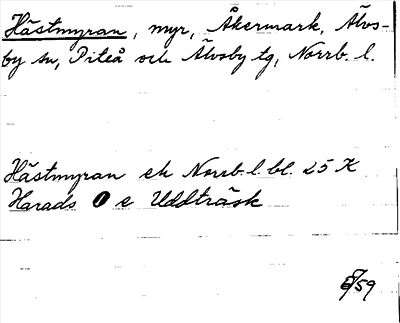 Hästmyran, myr, Åkermark, Älvs-
by sn, Piteå och Älvsby tg, Norrb. l.
Hästmyran ek Norrb. l. bl. 25 K
Harads O e Uddträsk
/59